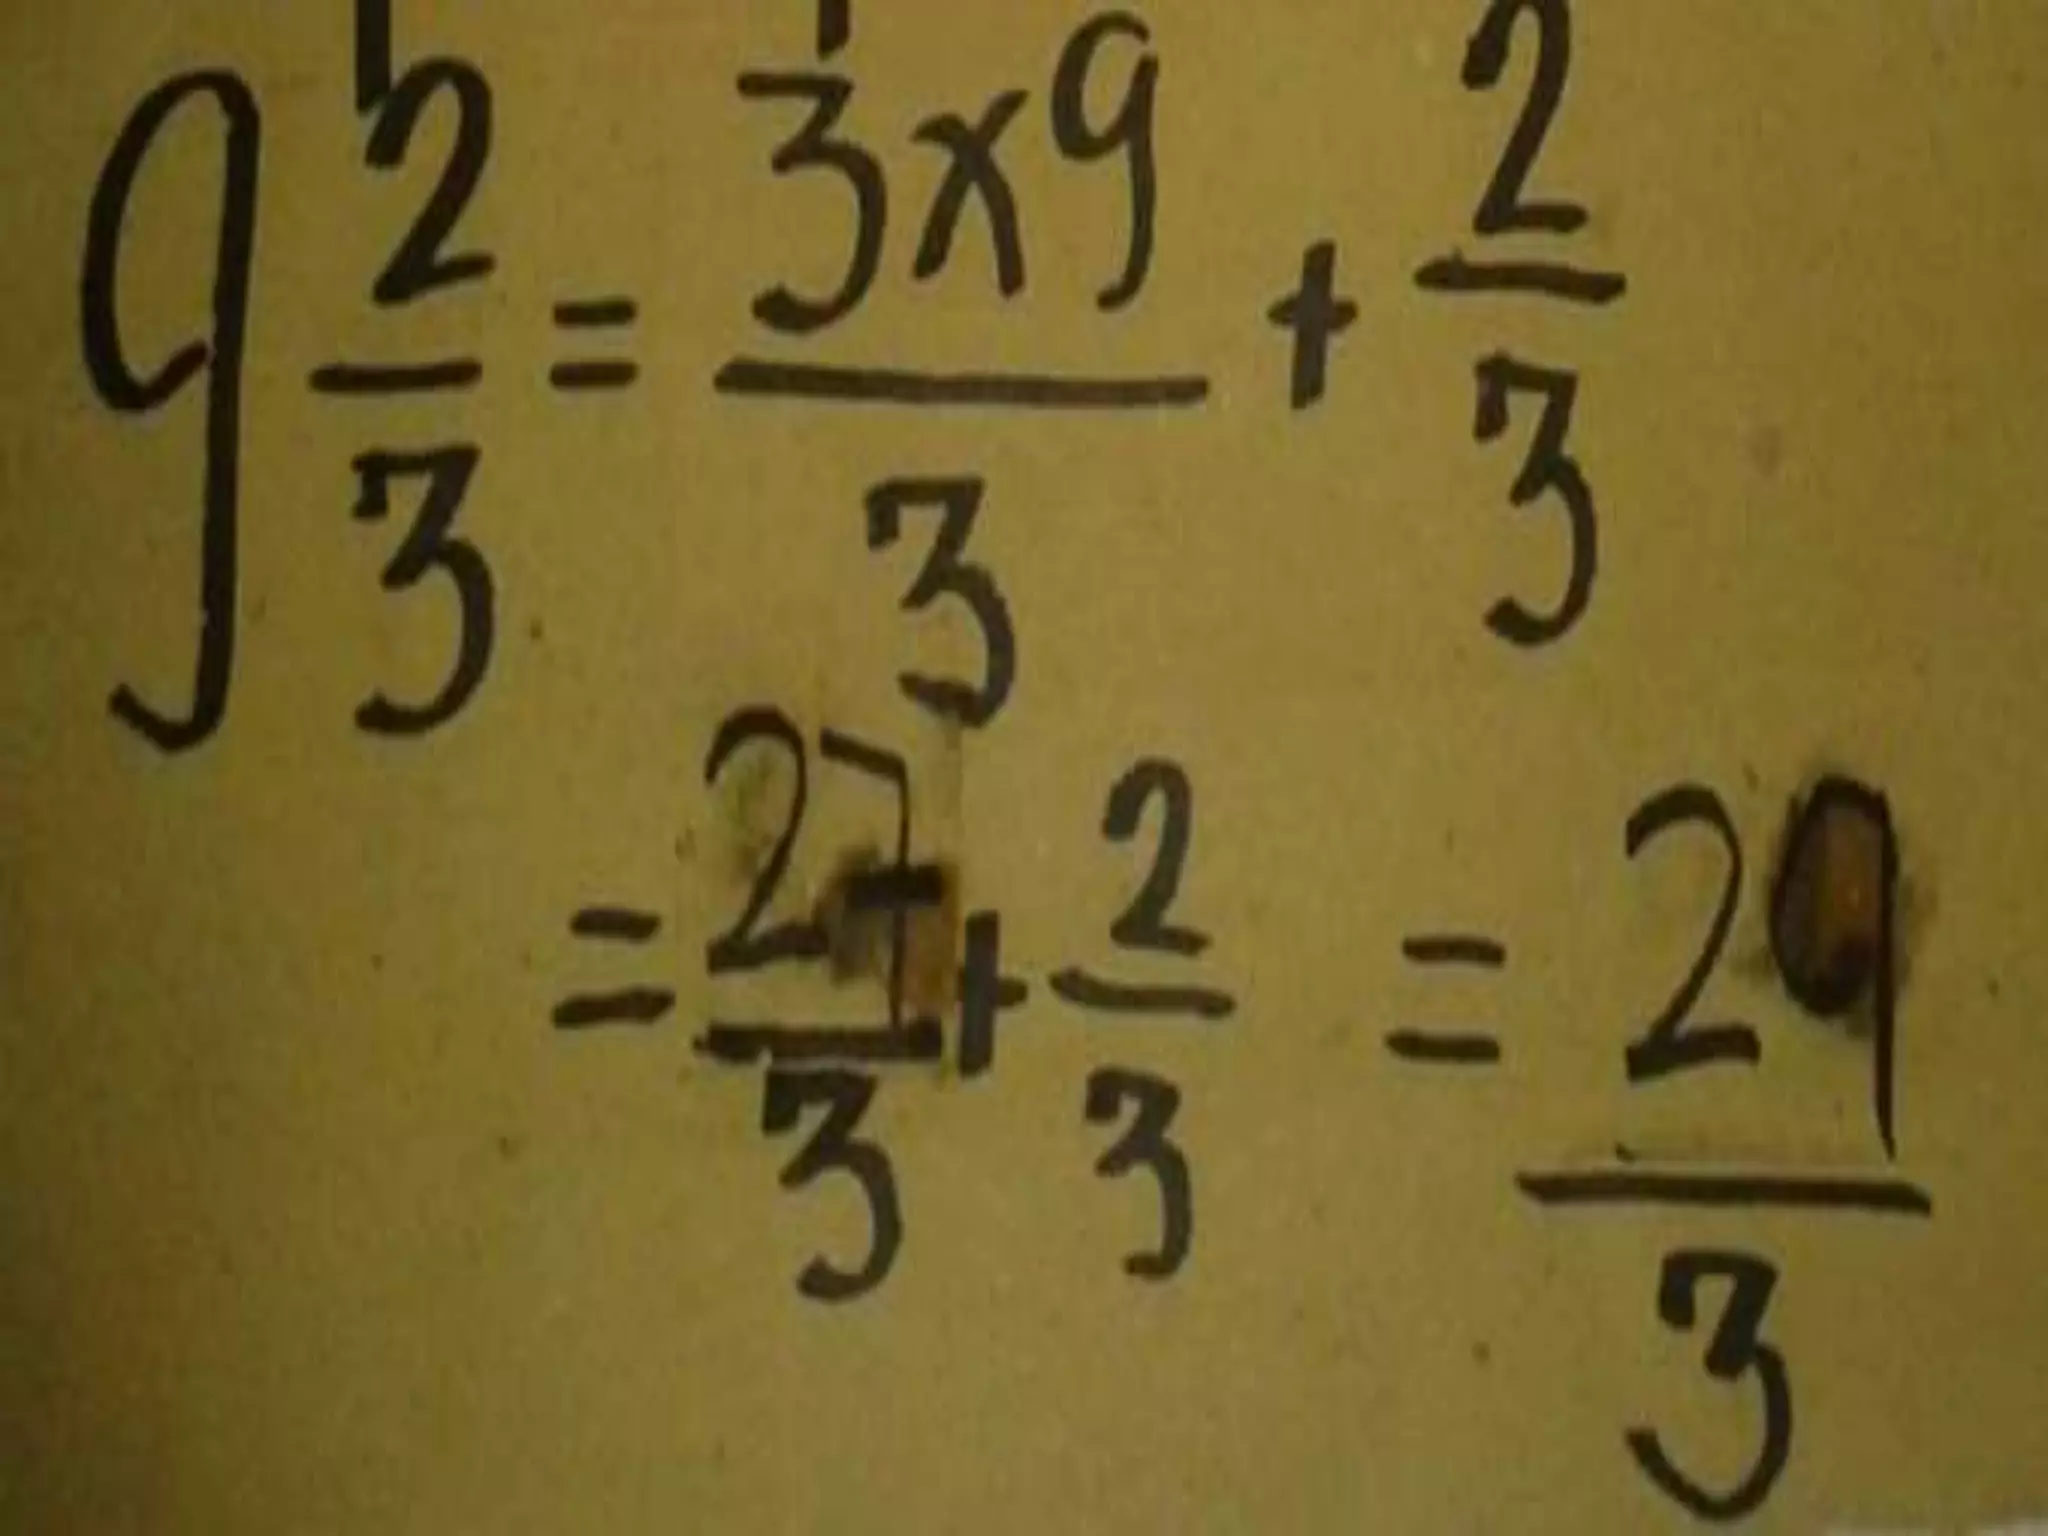 9 2/3 = 3x9/3 + 2/3
= 27/3 + 2/3 = 29/3